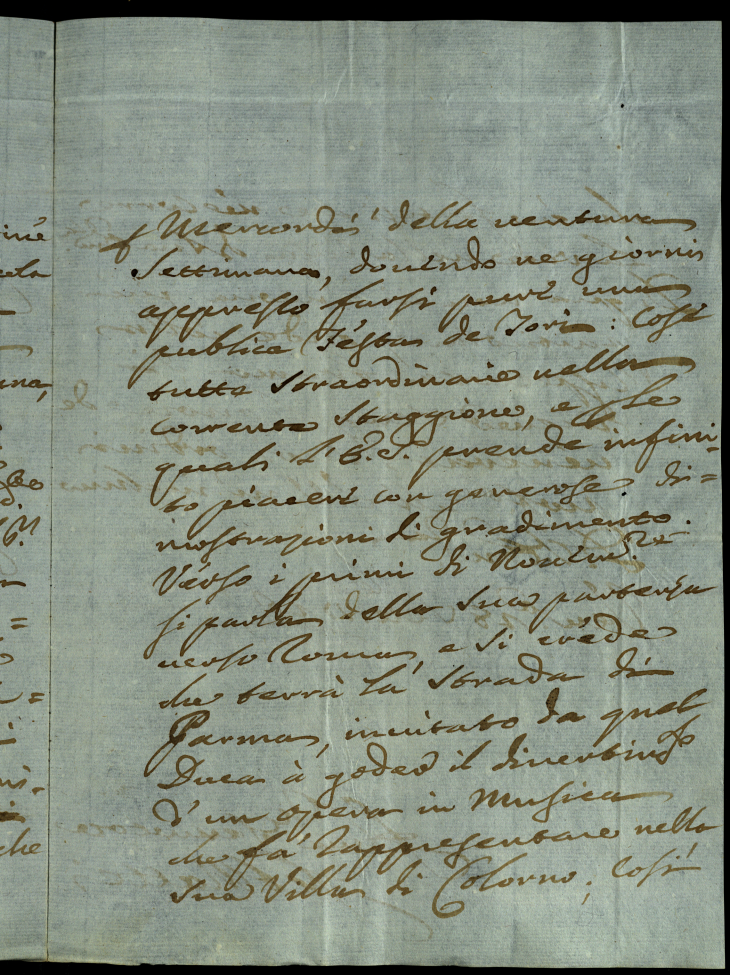 p Mercordì della ventura
Settimana, douendo ne giorni
appresso farsi pure una
publica Festa de Tori: Così
tutte straordinarie nella
corrente staggione, e ple
quali l'E.S. prende infini-
to piacere con generose di=
mostrazioni di gradimento.
Verso i primi di Nouem.re
si parla della sua partenza
uerso Roma, e si crede
che terrà la strada di
Parma, inuitato da quel
Duca à goder il diuertim.to
d'un opera in Musica
che fà rappresentare nella
sua Villa di Colorno; Così